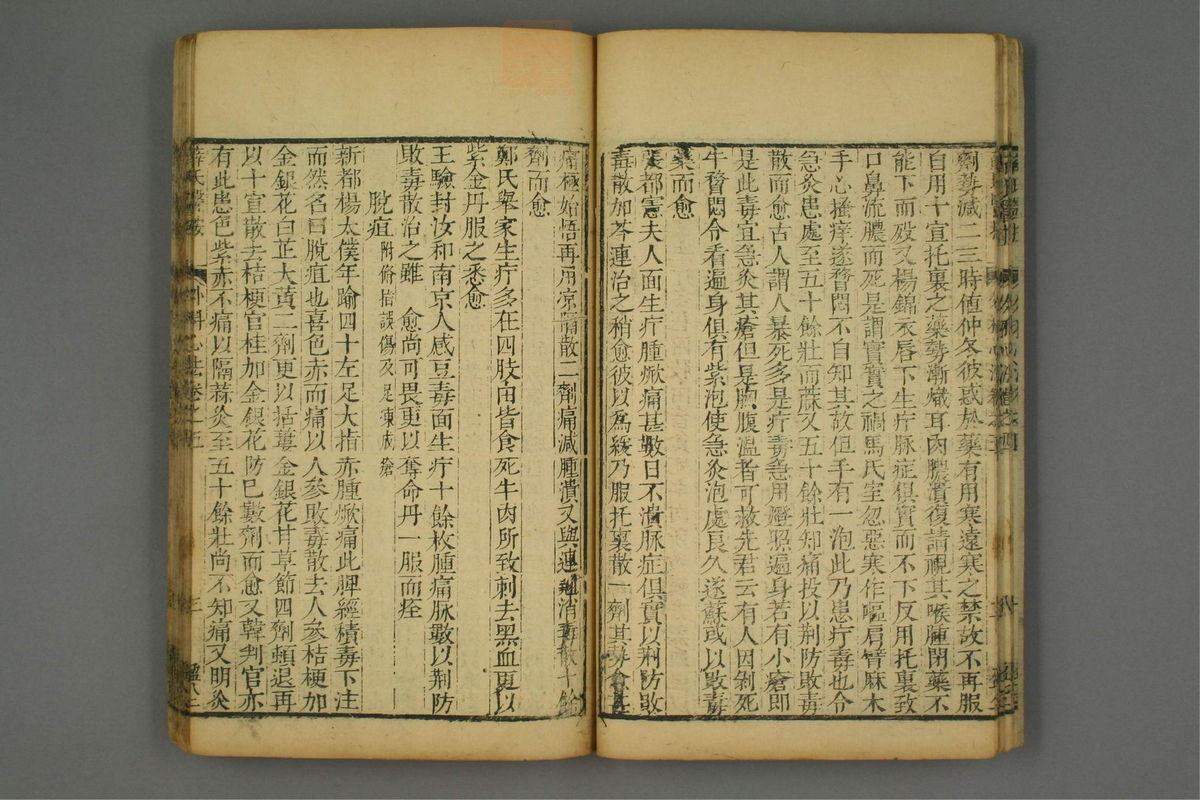 劑勢減二三時值仲冬彼惑於藥有用寒遠寒之禁故不再服
自用十宣托裏之藥勢漸熾耳內膿潰復請視其喉腫閉藥不
能下而歿又楊錦衣唇下生疔脉症俱實而不下反用托裏致
口鼻流膿而死是謂實實之禍馬氏室忽惡寒作嘔肩臂麻木
手心搔痒遂瞀悶不自知其故但手有一泡此乃患疔毒也令
急灸患處至五十餘壯而蘇又五十餘壯知痛投以荆防敗毒
散而愈古人謂人暴死多是疔毒急用燈照遍身若有小瘡即
是此毒宜急灸其瘡但是胸腹溫者可救先君云有人因剝死
牛瞀悶令看遍身俱有紫泡使急灸泡處良久遂蘇或以敗毒
藥而愈
都憲夫人面生疔腫焮痛甚數日不潰脉症俱實以荆防敗
毒散加芩連治之稍愈彼以爲緩乃服托裏散一劑其勢
痛極始悟再用凉膈散二劑痛減腫潰又與連翹消毒散十餘
劑而愈
鄭氏舉家生疔多在四肢由皆食死牛肉所致刺去黑血更以
紫金丹服之悉愈
王驗封汝和南京人感豆毒面生疔十餘枚腫痛脉數以荆防
敗毒散治之雖 愈尚可畏更以奪命丹一服而痊
脫疽 附脩指誤傷及足凍成瘡
新都楊太僕年踰四十左足大指赤腫焮痛此脾經積毒下注
而然名曰脫疽也喜色赤而痛以人參敗毒散去人參桔梗加
金銀花白芷大黃二劑更以栝蔞金銀花甘草節四劑頓退再
以十宣散去桔梗官桂加金銀花防已數劑而愈又韓判官亦
有此患色紫赤不痛以隔蒜灸至五十餘壯尚不知痛又明灸
薛氏醫按 外科心法卷之五 三